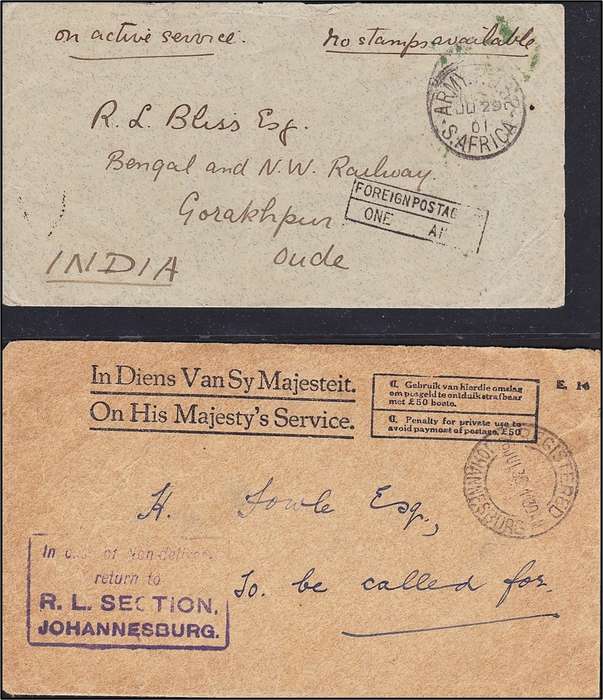 on active service. no stamps available
ARMY
JU 29
01
S. AFRICA
R. L. Bliss Esq.
Bengal and N.W. Railway.
FOREIGN POSTAG
ONE
Gorakhpur
Oude
INDIA
In Diens Van Sy Majesteit.
On His Majesty's Service.
₵. Gebruik van hierdie omslag
om posgeld te ontduik strafbaar
met £50 boete.
₵. Penalty for private use to
avoid payment of postage, £50
E. 14
REGISTERED
JOHANNESBURG
H. Fowle Esq.,
To be called for.
In case of Non-delivery
return to
R. L. SECTION,
JOHANNESBURG.